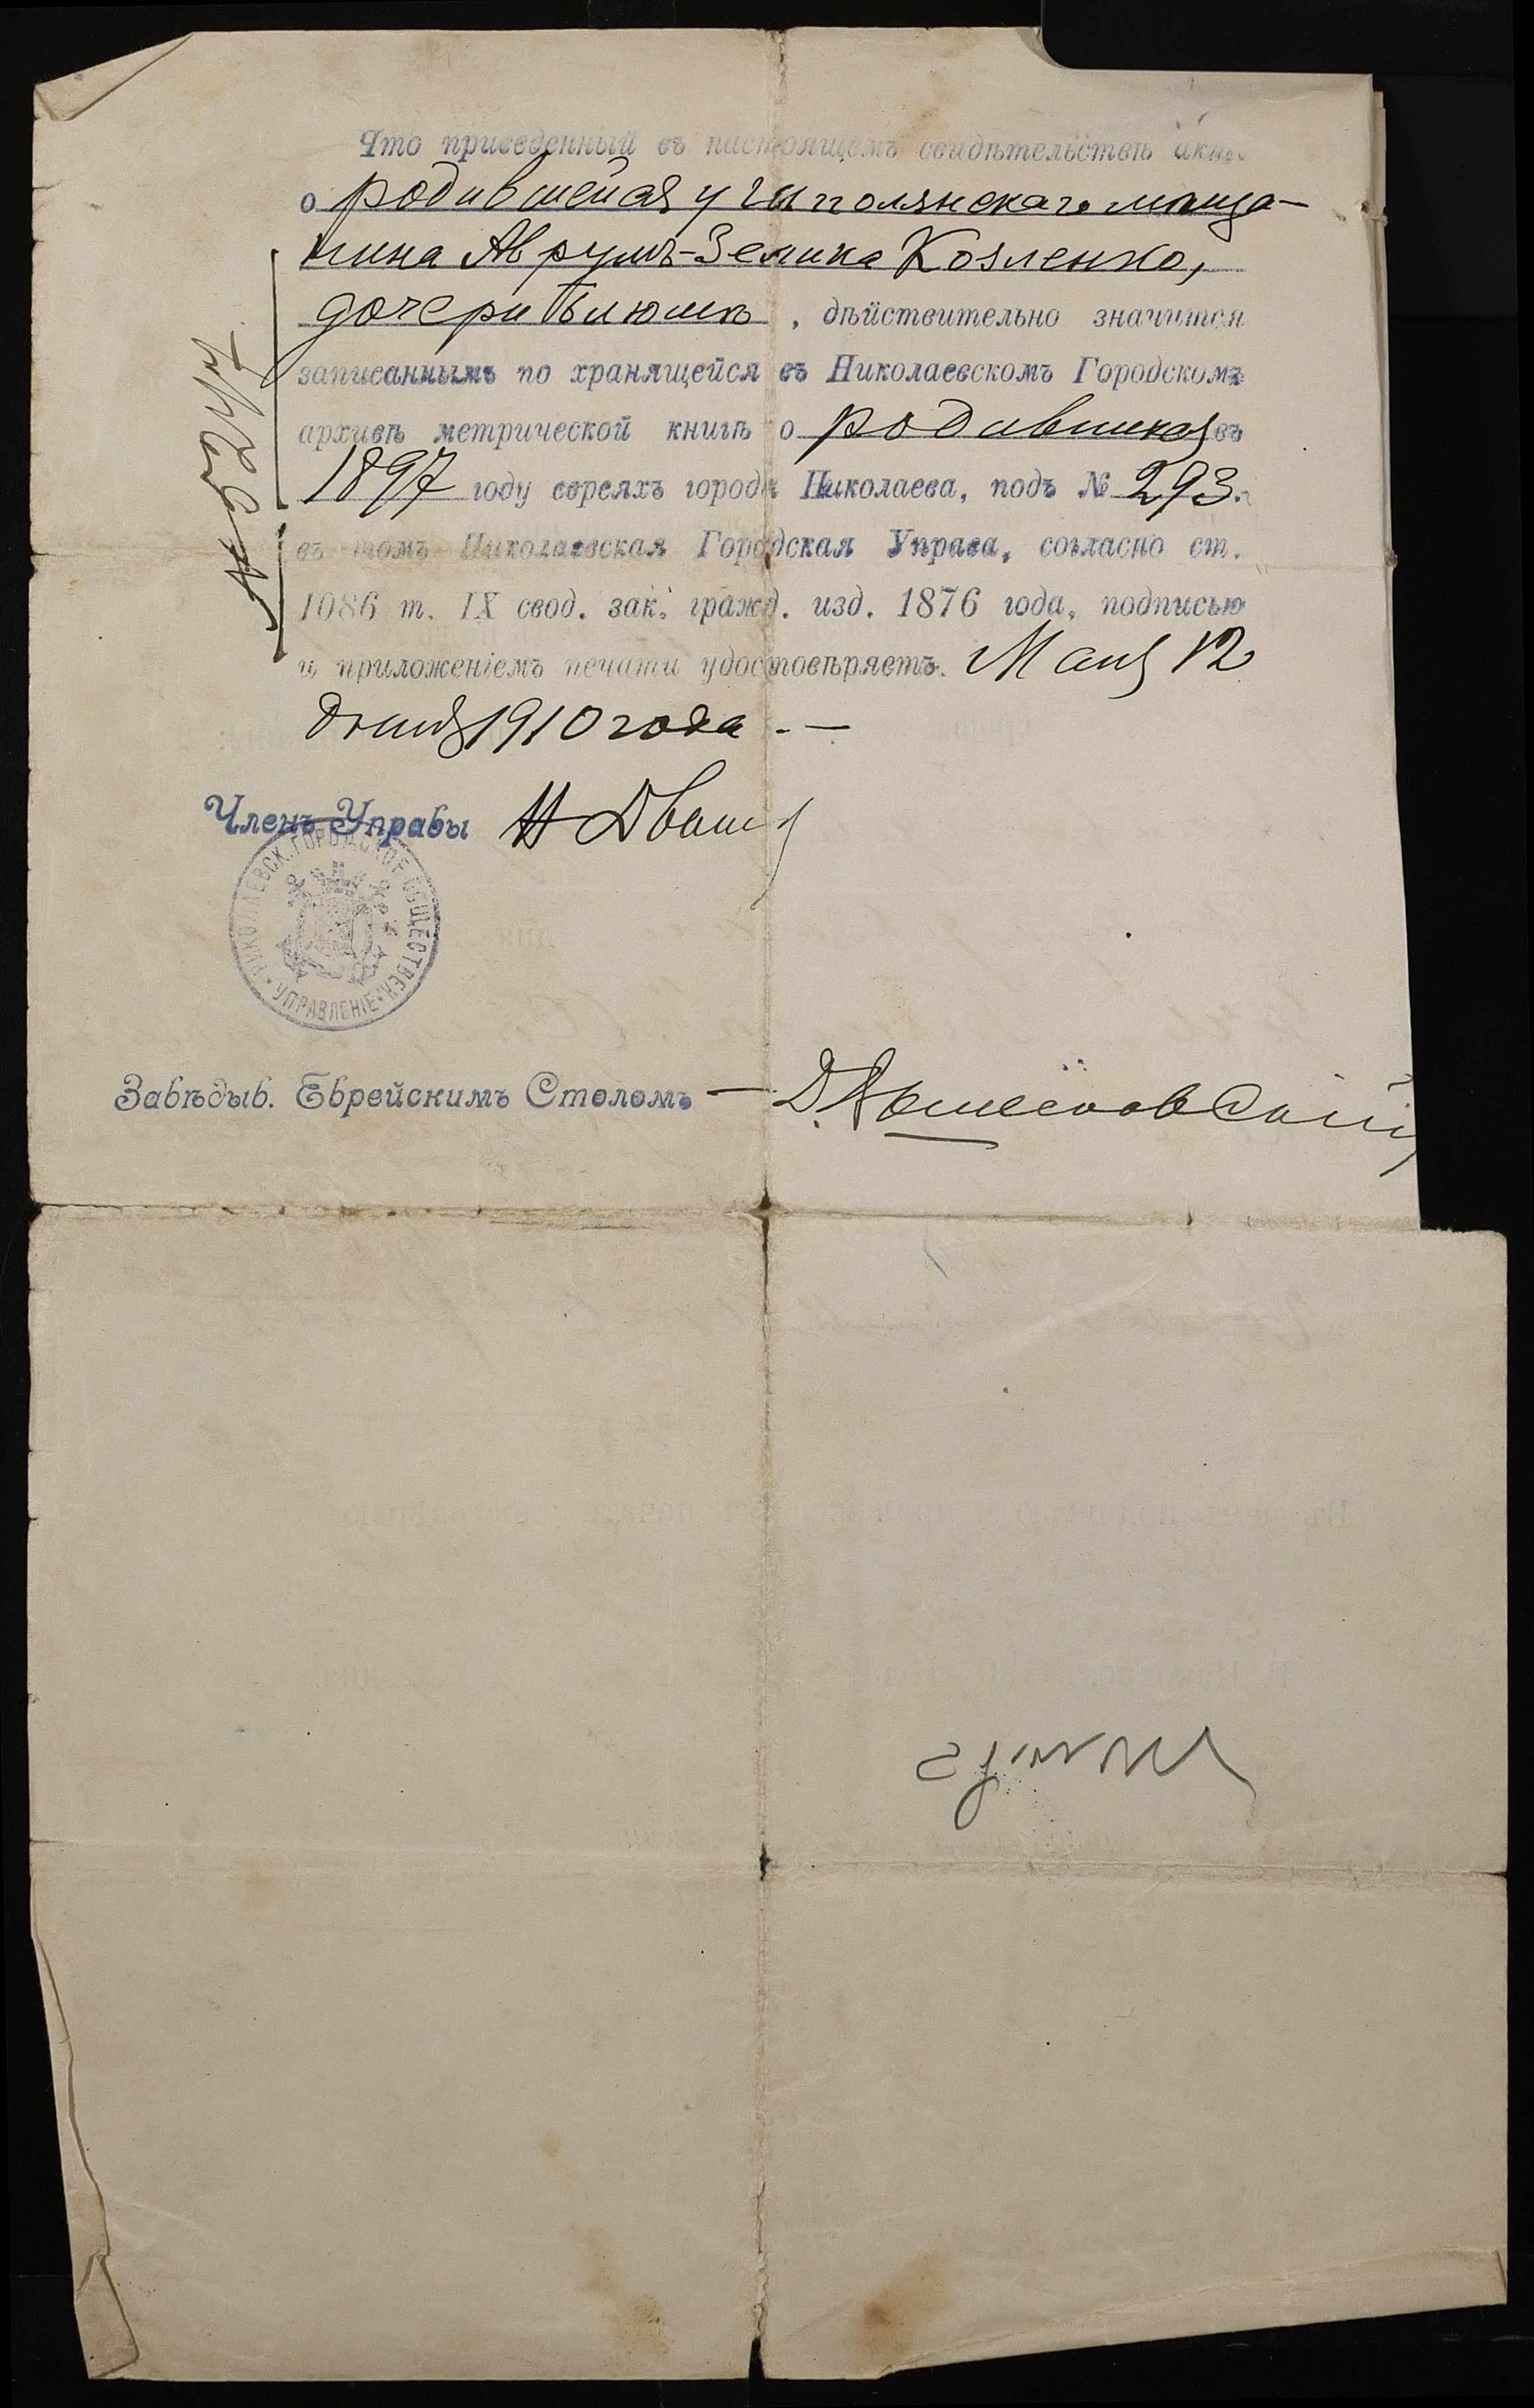 Что приведенный въ настоящемъ свидѣтельствѣ актъ
о родившейся у Шполянскаго мѣща-
нина Аврумъ-Зелика Козленко,
дочери Блюмѣ, дѣйствительно значится
записаннымъ по хранящейся въ Николаевскомъ Городскомъ
архивѣ метрической книгѣ о родившихся въ
1897 году евреяхъ города Николаева, подъ № 293.
въ томъ Николаевская Городская Управа, согласно ст.
1086 т. IX свод. зак. гражд. изд. 1876 года, подписью
и приложеніемъ печати удостовѣряетъ. Мая 12
дня 1910 года. —
№ 5247
Членъ Управы
НИКОЛАЕВСК. ГОРОДСКОЕ ОБЩЕСТВЕН. УПРАВЛЕНІЕ
Завѣдыв. Еврейскимъ Столомъ —